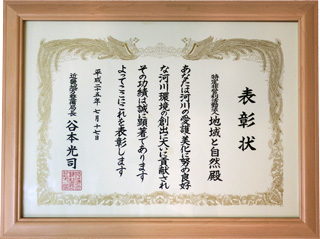 表彰状
特定非営利活動法人 地域と自然 殿
あなたは河川の愛護美化に努め良好
な河川環境の創出に大いに貢献され
その功績は誠に顕著であります
よってここにこれを表彰します
平成二十五年七月十七日
近畿地方整備局長 谷本光司